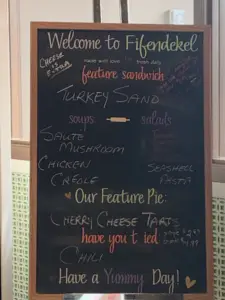 Welcome to Fifendekel
CHEESE IS EXTRA
made with love
feature sandwich
TURKEY SAND
soups
salads
SAUTE MUSHROOM
CHICKEN CREOLE
SEASHELL PASTA
Our Feature Pie:
CHERRY CHEESE TARTS
have you t ied
CHILI
Have a Yummy Day!